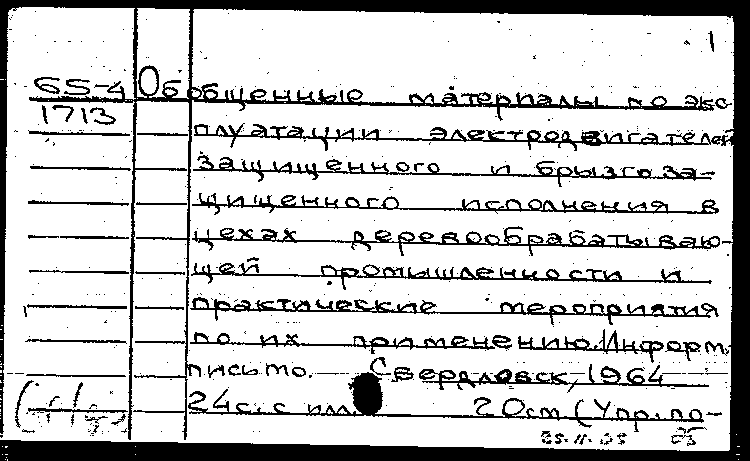 1
65-4 Обобщенные материалы по экс
1713
плуатации электродвигателей
защищенного и брызгоза-
щищенного исполнения в
цехах деревообрабатываю-
щей промышленности и
практические мероприятия
по их применению. Информ.
письмо. Свердловск, 1964
24с. с илл. 20см (Упр. по-